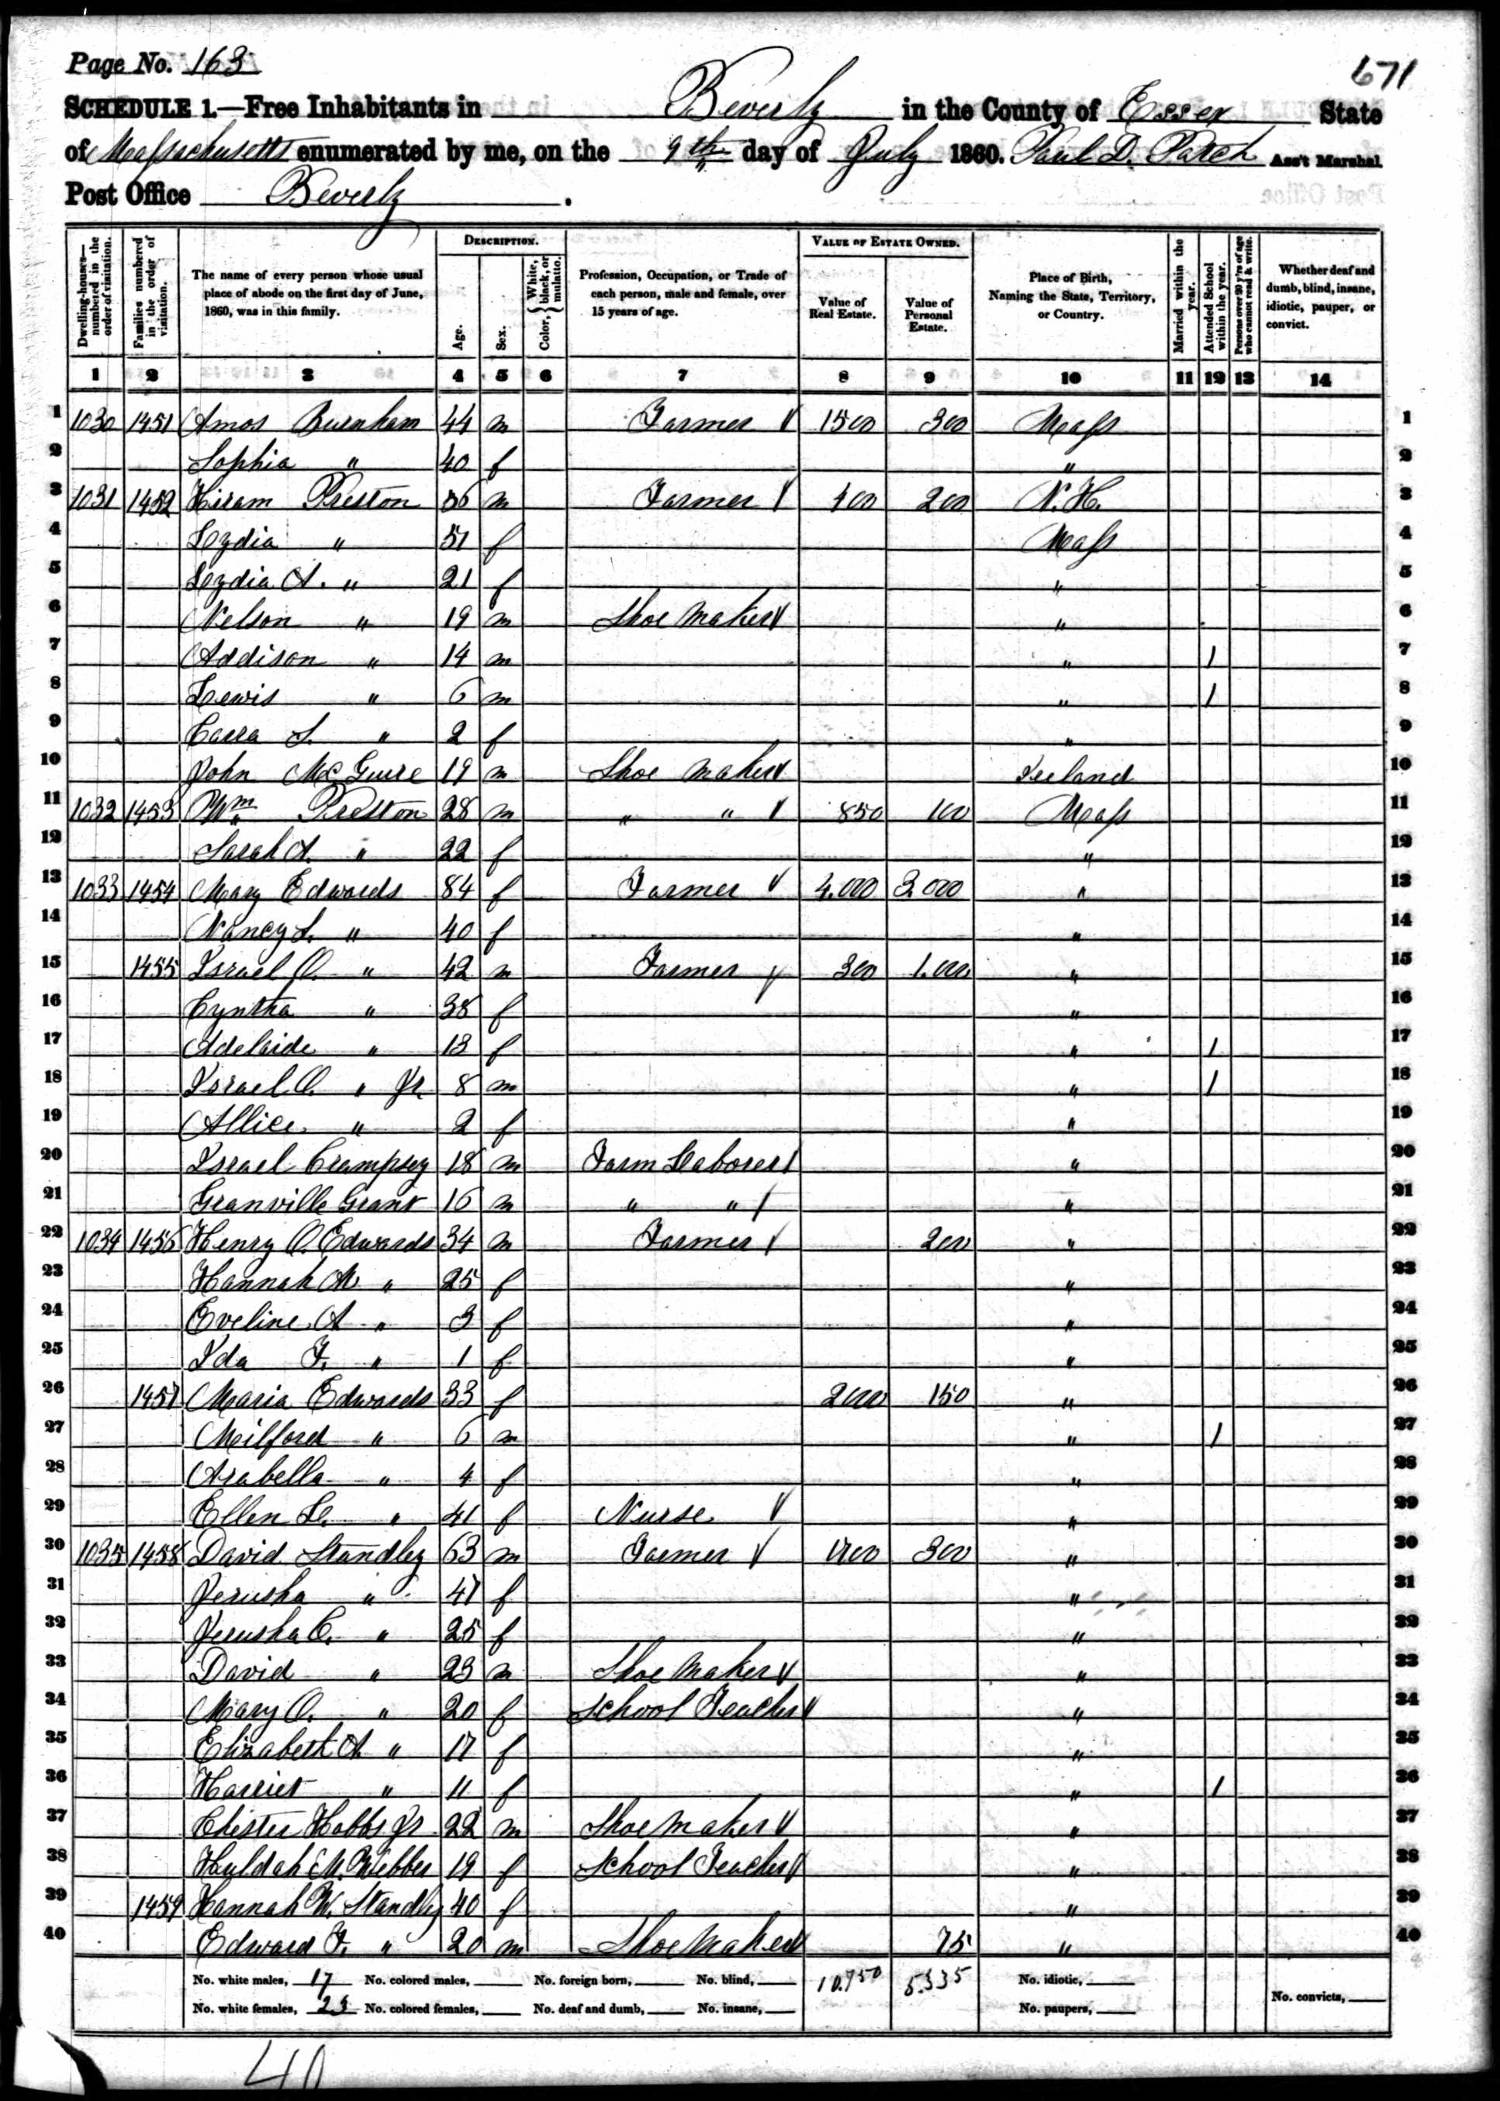 Page No. 163
671
SCHEDULE 1.—Free Inhabitants in Beverly in the County of Essex State
of Massachusetts enumerated by me, on the 9th day of July 1860. Paul D. Patch Ass't Marshal
Post Office Beverly.
DESCRIPTION. VALUE OF ESTATE OWNED.
Dwelling-houses—numbered in the order of visitation. Families numbered in the order of visitation. The name of every person whose usual place of abode on the first day of June, 1860, was in this family. Age. Sex. Color, { White, black, or mulatto. Profession, Occupation, or Trade of each person, male and female, over 15 years of age. Value of Real Estate. Value of Personal Estate. Place of Birth, Naming the State, Territory, or Country. Married within the year. Attended School within the year. Persons over 20 y'rs of age who cannot read & write. Whether deaf and dumb, blind, insane, idiotic, pauper, or convict.
1 2 3 4 5 6 7 8 9 10 11 12 13 14
1 1030 1451 Amos Burnham 44 m Farmer 1500 300 Mass 1
2 Sophia " 40 f " 2
3 1031 1452 Hiram Preston 56 m Farmer 400 200 N.H. 3
4 Lydia " 51 f Mass 4
5 Lydia A. " 21 f " 5
6 Nelson " 19 m Shoe Maker " 6
7 Addison " 14 m " / 7
8 Lewis " 6 m " / 8
9 " 2 f " 9
10 John McGuire 19 m Shoe Maker Ireland 10
11 1032 1453 Wm Preston 28 m " " 850 100 Mass 11
12 Sarah A. " 22 f " 12
13 1033 1454 Mary Edwards 84 f Farmer 4,000 3000 " 13
14 Nancy L. " 40 f " 14
15 1455 Israel O. " 42 m Farmer 300 1,000 " 15
16 Cyntha " 38 f " 16
17 Adelaide " 13 f " / 17
18 Israel O. " Jr. 8 m " / 18
19 Allice " 2 f " 19
20 Israel Crampsey 18 m Farm Laborer " 20
21 Granville Grant 16 m " " " 21
22 1034 1456 Henry O. Edwards 34 m Farmer 200 " 22
23 Hannah M " 25 f " 23
24 Eveline A " 3 f " 24
25 Ida F. " 1 f " 25
26 1457 Maria Edwards 33 f 2000 150 " 26
27 Milford " 6 m " / 27
28 Arabella " 4 f " 28
29 Ellen L. " 41 f Nurse " 29
30 1035 1458 David Standley 63 m Farmer 300 " 30
31 Jerusha " 47 f " 31
32 Jerusha C. " 25 f " 32
33 David " 23 m Shoe Maker " 33
34 Mary O. " 20 f School Teacher " 34
35 Elizabeth A. " 17 f " 35
36 Harriet " 11 f " / 36
37 Chester Hobbs Jr. 22 m Shoe Maker " 37
38 Huldah M. Webber 19 f School Teacher " 38
39 1459 Hannah W. Standley 40 f " 39
40 Edward F. " 20 m Shoe Maker 75 " 40
No. white males, 17 No. colored males, No. foreign born, No. blind, 10,750 5,335 No. idiotic,
No. white females, 23 No. colored females, No. deaf and dumb, No. insane, No. paupers, No. convicts,
40